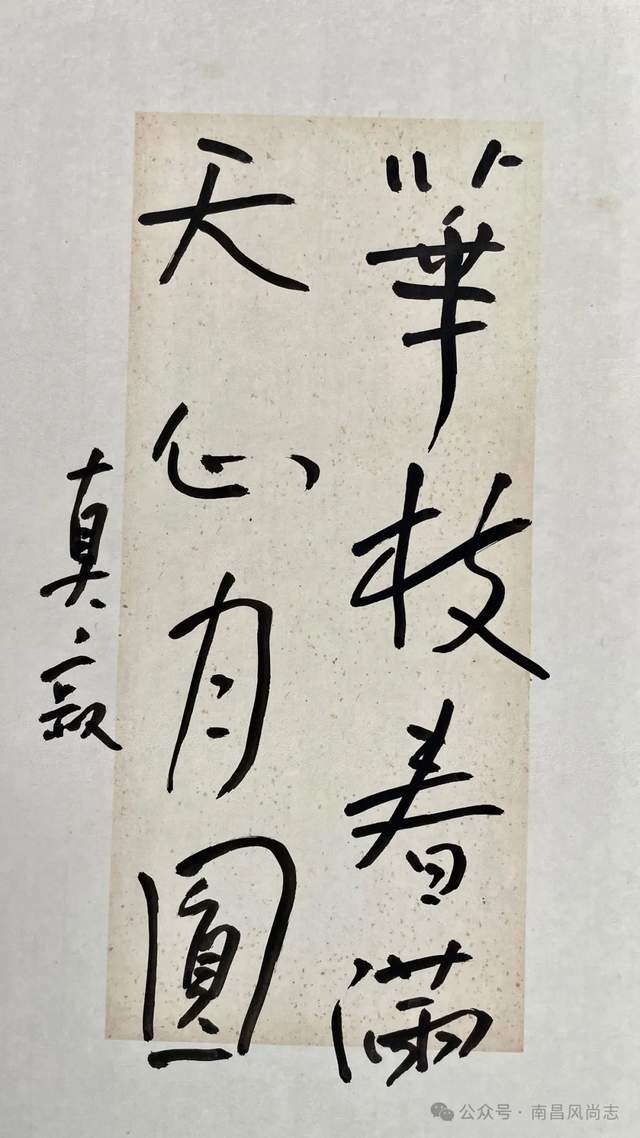 華枝春滿
天心月圓
真寂
公众号 · 南昌风尚志